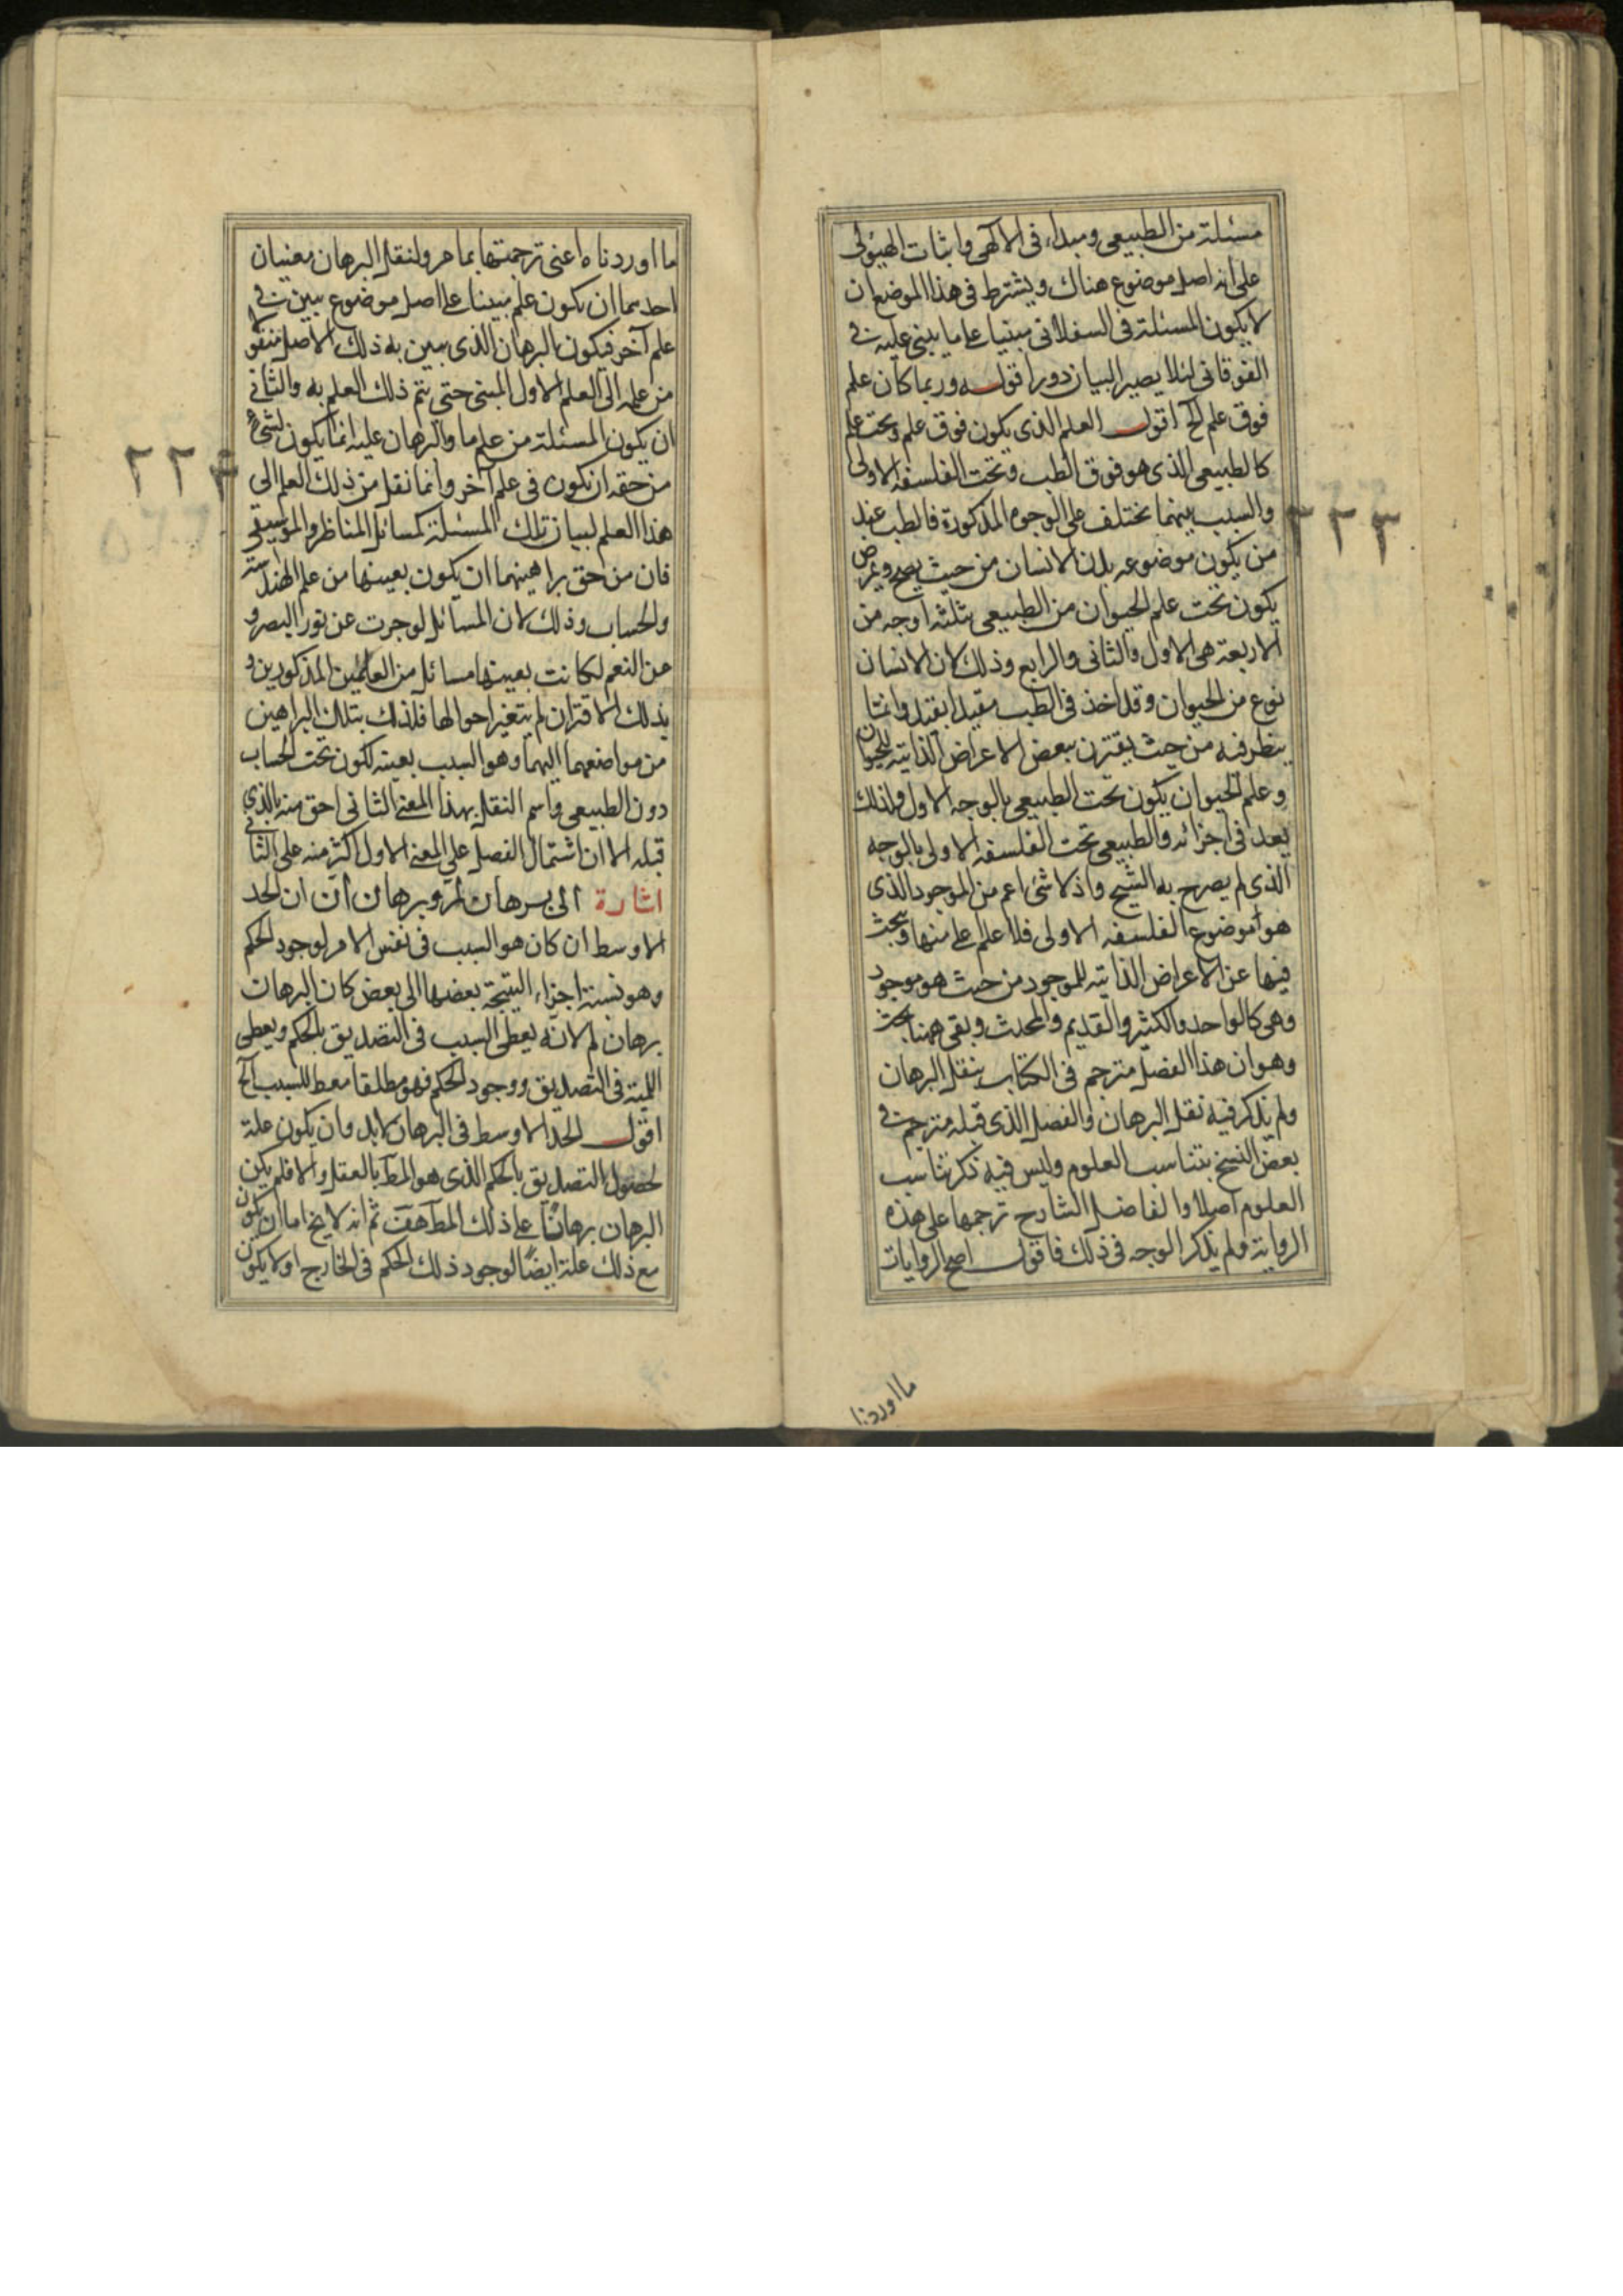 مسئلة من الطبيعى ومبداء فى الالهى واثبات الهيولى
على انه اصل موضوع هناك ويشترط فى هذا الموضع ان
لا يكون المسئلة فى السفلانى مبنيا على ما يبنى عليه فى
الفوقانى لئلا يصير البيان دورا قوله وربما كان علم
فوق علم الخ اقول العلم الذى يكون فوق علم وتحت علم
كالطبيعى الذى هو فوق الطب وتحت الفلسفه الاولى
والسبب بينهما يختلف على الوجوه المذكورة فالطب عند
من يكون موضوعه بدن الانسان من حيث يصح ويمرض
يكون تحت علم الحيوان من الطبيعى بثلثه اوجه من
الاربعة هى الاول والثانى والرابع وذلك لان الانسان
نوع من الحيوان وقد اخذ فى الطب مقيدا بقيد وانما
ينظر فيه من حيث يقترن ببعض الاعراض الذاتية للحيوان
وعلم الحيوان يكون تحت الطبيعى بالوجه الاول ولذلك
يعد فى اجزائه والطبيعى تحت الفلسفه الاولى بالوجه
الذى لم يصرح به الشيخ واذ لا شئ اعم من الموجود الذى
هو موضوع الفلسفه الاولى فلا علم على منها ويبحث
فيها عن الاعراض الذاتية للموجود من حيث هو موجود
وهى كالواحد والكثير والقديم والمحدث وبقى ههنا بحث
وهو ان هذا الفصل مترجم فى الكتاب بنقل البرهان
ولم يذكر فيه نقل البرهان والفصل الذى قبله مترجم فى
بعض النسخ بتناسب العلوم وليس فيه ذكر تناسب
العلوم اصلا والفاضل الشارح ترجمها على هذه
الرواية ولم يذكر الوجه فى ذلك فاقول اصح الروايات
ما اوردنا
٢٢٣
ما اوردناه اعنى ترجمتها بما مر ولنقل البرهان معنيان
احدهما ان يكون علم مبينا على اصل موضوع يبين فى
علم آخر فيكون بالبرهان الذى يبين به ذلك الاصل منقولا
من علمه الى العلم الاول المبنى حتى يتم ذلك العلم به والثانى
ان يكون المسئلة من علم ما والبرهان عليه انما يكون لشئ
من حقه ان يكون فى علم آخر وانما نقل من ذلك العلم الى
هذا العلم لبيان تلك المسئلة كمسائل المناظر والموسيقى
فان من حق براهينهما ان يكون بعينها من علم الهندسة
والحساب وذلك لان المسائل لو جرت عن نور البصر و
عن النغم لكانت بعينها مسائل من العلمين المذكورين و
بذلك الاقتران لم يتغير احوالها فلذلك بتلك البراهين
من مواضعهما اليهما وهو السبب بعينه لكون تحت الحساب
دون الطبيعى واسم النقل بهذا المعنى الثانى احق منه بالذى
قبله الا ان اشتمال الفصل على المعنى الاول اكثر منه على الثانى
اشارة الى برهان لم وبرهان ان ان الحد
الاوسط ان كان هو السبب فى نفس الامر لوجود الحكم
وهو نسبة اجزاء النتيجة بعضها الى بعض كان البرهان
برهان لم لانه يعطى السبب فى التصديق بالحكم ويعطى
اللمية فى التصديق ووجود الحكم فهو مطلقا معط للسبب الخ
اقول الحد الاوسط فى البرهان لابد وان يكون علة
لحصول التصديق بالحكم الذى هو المط بالعقل والا فلم يكن
البرهان برهانا على ذلك المط هف ثم انه لا يخ اما ان يكون
مع ذلك علة ايضا لوجود ذلك الحكم فى الخارج او لا يكون
٢٢٤